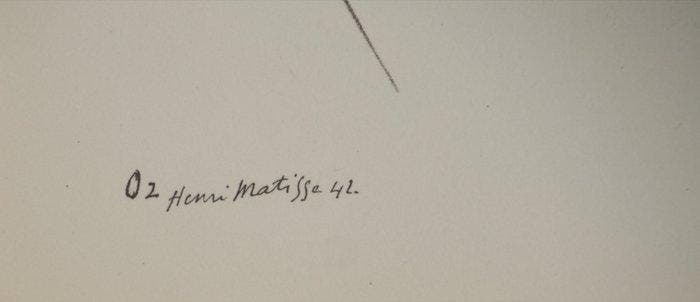 O2 Henri Matisse 42.